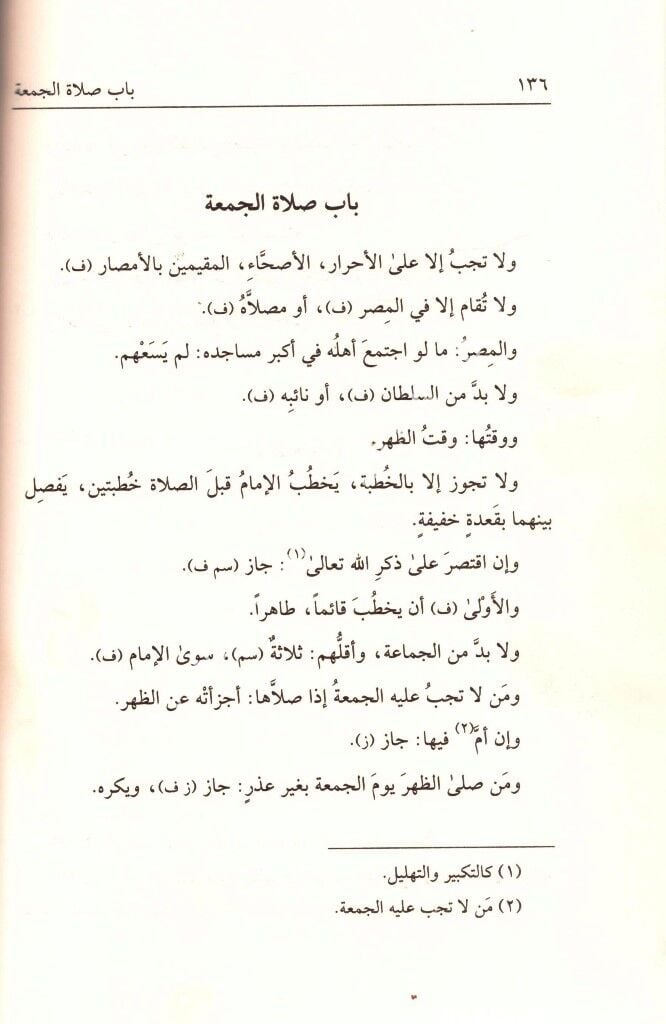 ١٣٦ باب صلاة الجمعة
باب صلاة الجمعة
ولا تجبُ إلا علىٰ الأحرار، الأصحَّاءِ، المقيمين بالأمصار (ف).
ولا تُقام إلا في المِصر (ف)، أو مصلاَّهُ (ف).
والمِصرُ: ما لو اجتمعَ أهلُه في أكبر مساجده: لم يَسَعْهم.
ولا بدَّ من السلطان (ف)، أو نائبِه (ف).
ووقتُها: وقتُ الظهر.
ولا تجوز إلا بالخُطبة، يَخطُبُ الإمامُ قبلَ الصلاة خُطبتين، يَفصِل
بينهما بقَعدةٍ خفيفةٍ.
وإن اقتصرَ علىٰ ذكرِ الله تعالىٰ(١): جاز (سم ف).
والأَوْلىٰ (ف) أن يخطُبَ قائماً، طاهراً.
ولا بدَّ من الجماعة، وأقلُّهم: ثلاثةٌ (سم)، سوىٰ الإمام (ف).
ومَن لا تجبُ عليه الجمعةُ إذا صلاَّها: أجزأتْه عن الظهر.
وإن أمَّ(٢) فيها: جاز (ز).
ومَن صلىٰ الظهرَ يومَ الجمعة بغير عذرٍ: جاز (ز ف)، ويكره.
(١) كالتكبير والتهليل.
(٢) مَن لا تجب عليه الجمعة.